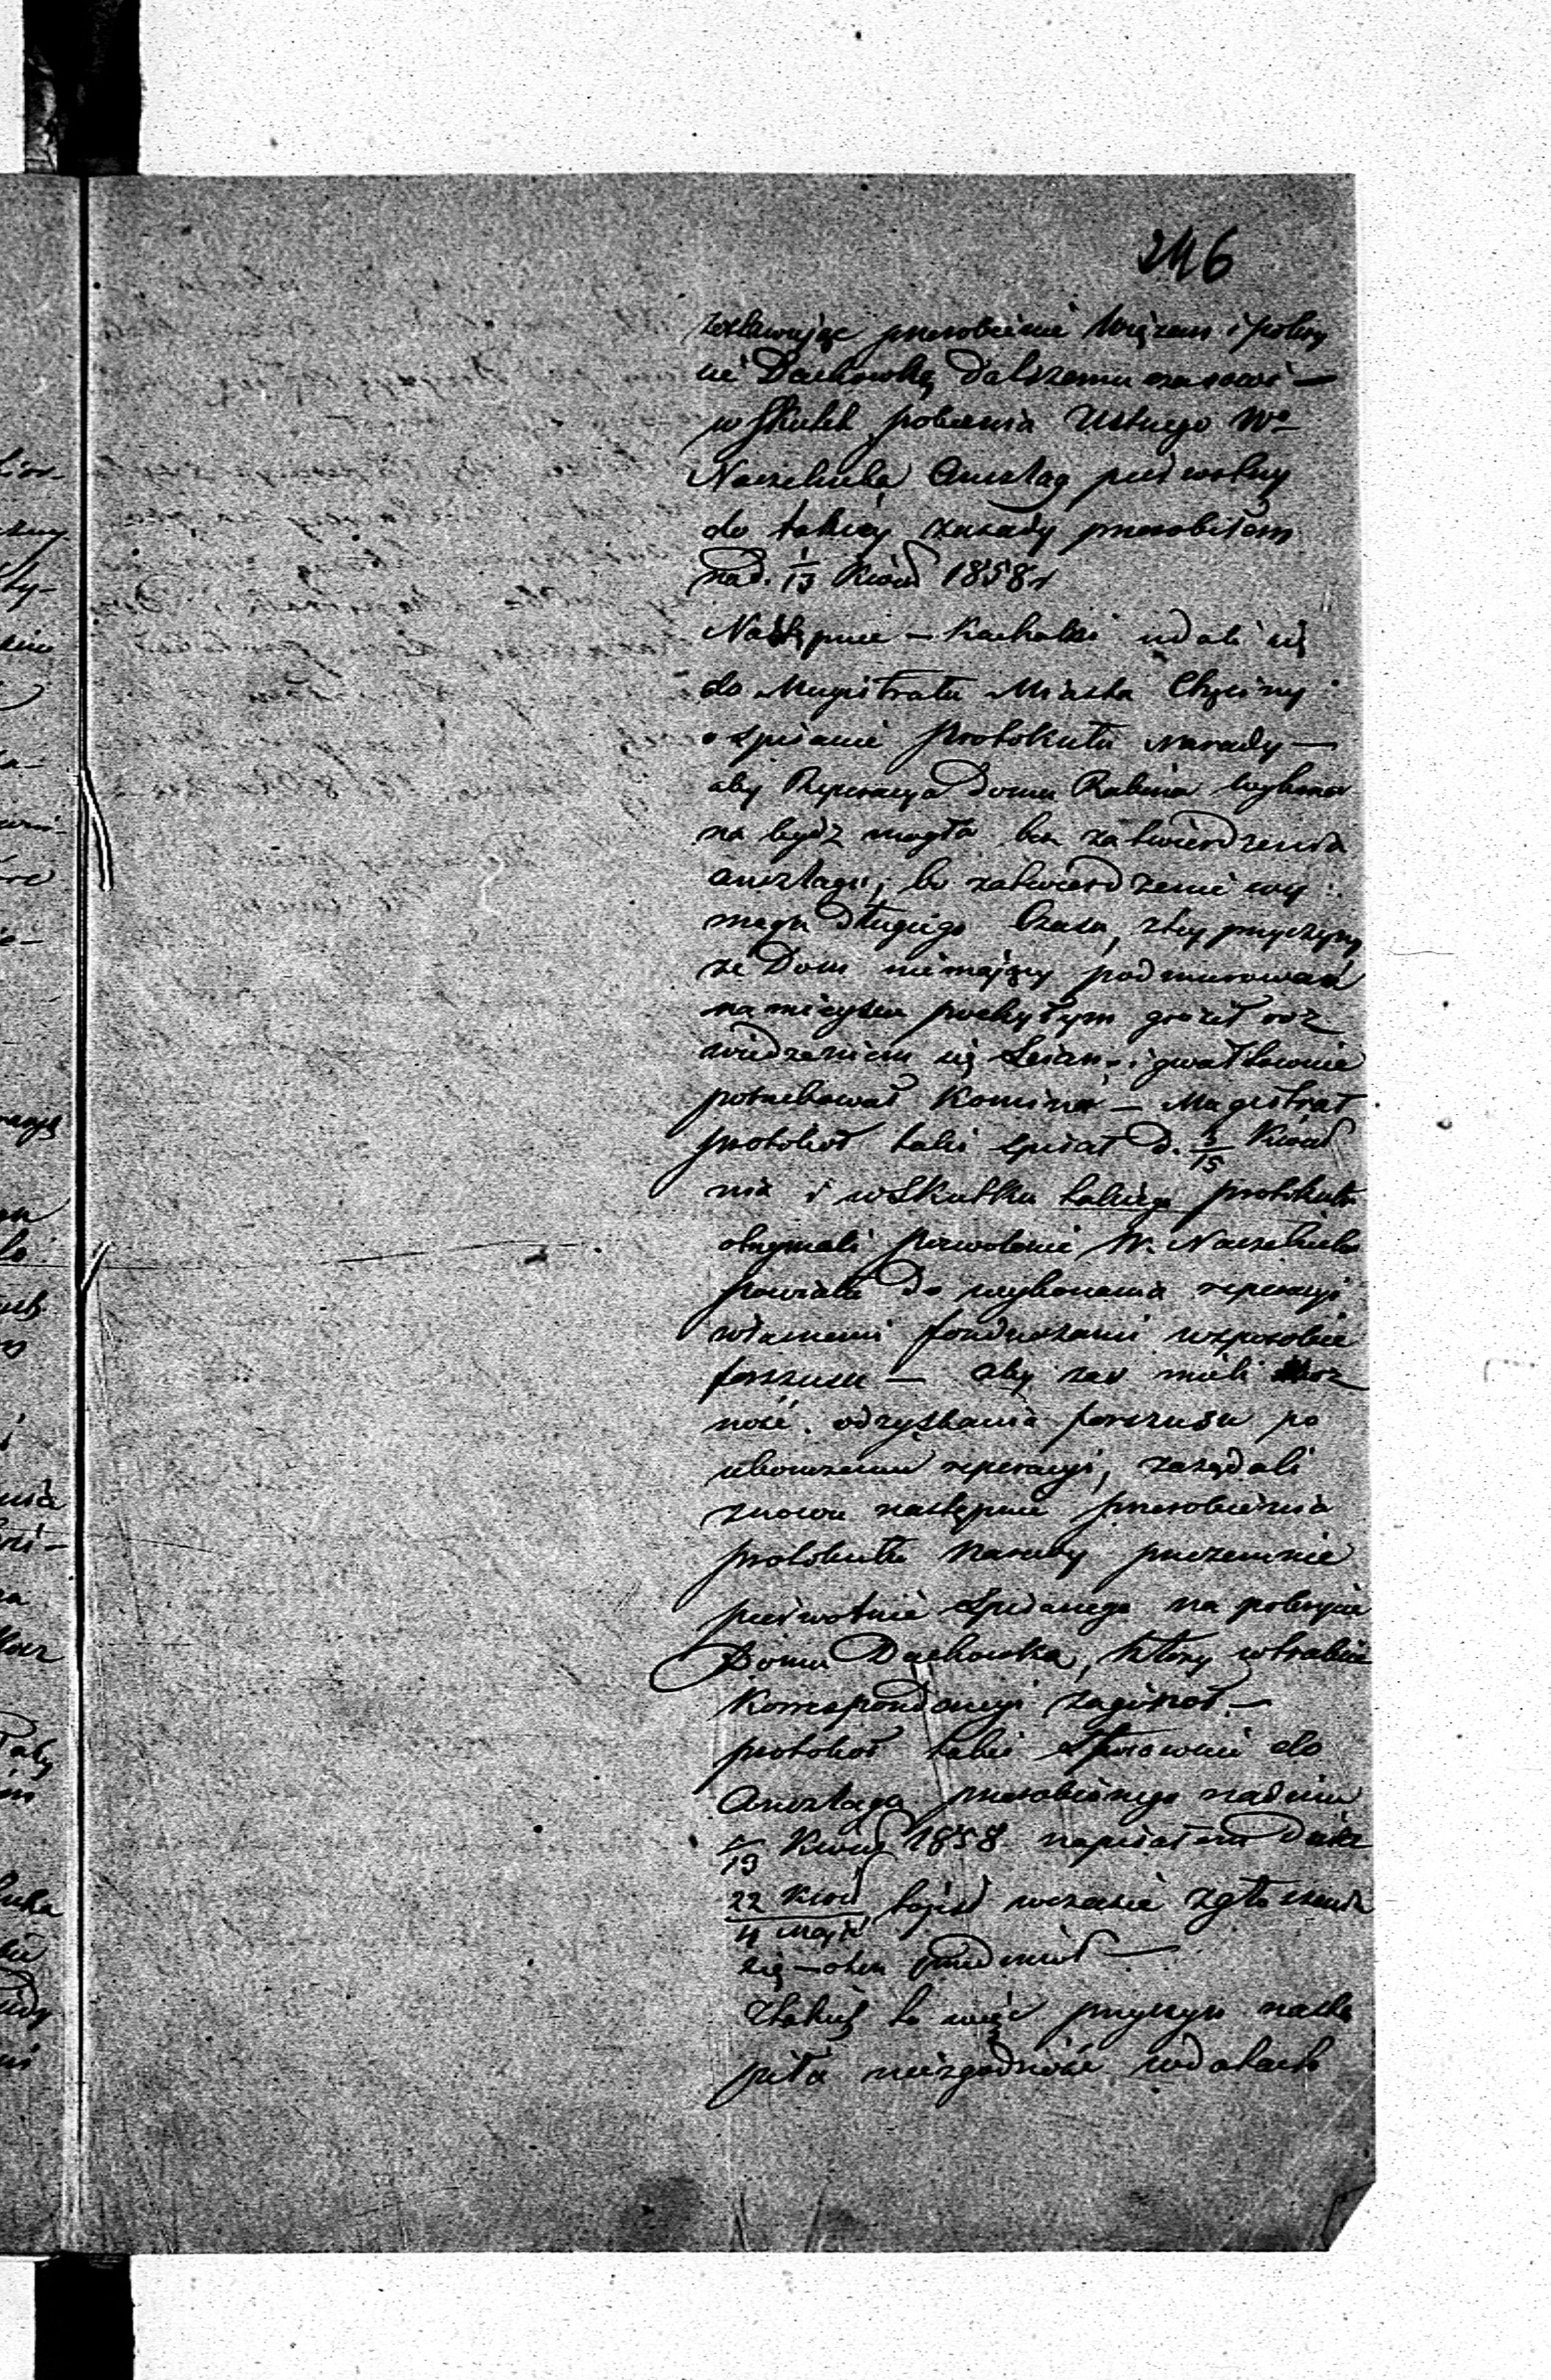 246
zostawując przerobienie Wiązan i pokry
cie Dachówką dalszemu czasowi —
w skutek polecenia Ustnego Wo
Naczelnika Anszlag pierwotny
do takiey zasady przerobiłem
na d. 1/13 Kwiet 1858 r
Następnie — Kachalni udali się
do Magistratu Miasta Chęciny
o spisanie protokułu Narady —
aby Reperacya Domu Rabina wykona
na bydź mogła bez zatwierdzenia
anszlagu; bo zatwierdzenie wy
maga długiego Czasu, z tey przyczyny
że Dom niemający podmurowań
na mieyscu pochyłym groził roz
wiedzeniem się Scian, i gwałtownie
potrzebował Komina — Magistrat
protokoł taki spisał d. 3/15 Kwiet
nia i w Skutku takiego protokułu
otrzymali pozwolenie W. Naczelnika
powiatu do wykonania reperacyi
własnemi funduszami w sposobie
forszusu — aby zaś mieli moż
ność odzyskania forszusu po
ukończeniu reperacyi, zażądali
znowu następnie przerobienia
protokułu Narady przezemnie
pierwotnie Spisanego na pokrycie
Domu Dachówką, który w trakcie
Korrespondencyi zaginoł —
protokoł taki Stosownie do
Anszlagu przerobionego na dniu
1/13 Kwiet 1858 napisałem Dnia
22 Kwiet/4 Maja to jest w czasie zgłoszenia
się — o ten przedmiot —
Z takiej to więc przyczyny nastą
piła niezgodność w datach